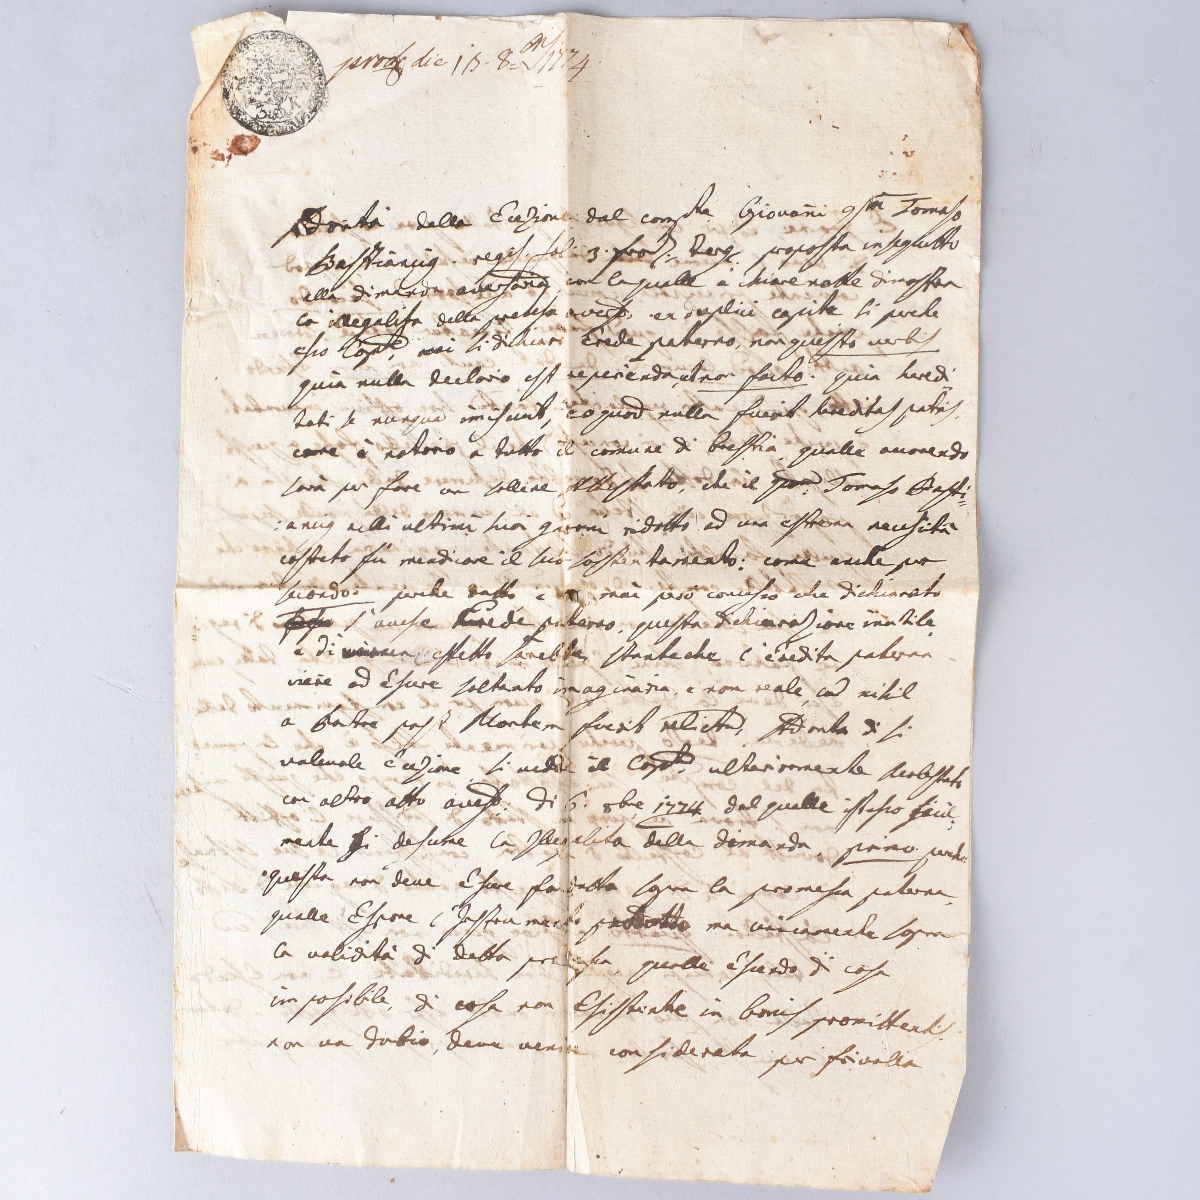 die 15. 8bris 1774
3 X
Adonta della Eccezione dal compte Giovañi qm Tomaso
Bastiancig. regis. fol. 3. proposta in seguitto
alla dimanda aversaria con la qualle a chiare notte dimostra
la illegalita della pretesa avers. ex duplici capite si perche
esso Compte mai si dichiarò Erede paterno, non questo verbis
quia nulla declaro est reperienda, et non facto. quia heredi
tati se nunqua imiscuit, eoquod nulla fuerit hereditas patris
come è notorio a tutto il comune di Bressia, qualle avorendo
sarà per fare un sollene Attestato, che il qm Tomaso Basti=
:ancig nelli ultimi suoi giorni ridotto ad una estrema necesità
costreto fu mendicare il suo sostentamento: come anche per
secondo: perche datto e mai però concesso che dichiarato
s'avese Erede paterno, questa dichiarazione inutile,
e di effetto sarebbe, stanteche l'eredita paterna
viene ad Esere soltanto imaginaria, e non reale, cum nihil
a Patre post Mortem fuerit relictum, Adonta di si
valevole eccezione, si vedde il Compte ulteriormente molestato
con altro atto avers. di 6. 8bre 1774 dal qualle istesso facil=
mente si desume la Illegalita della dimanda, primo perche
questa non deve Esere fondatta sopra la promessa paterna,
qualle Espone l'Instrumento prodotto ma unicamente sopra
la validità di detta promessa, qualle Esendo di cosa
impossibile, di cosa non Esistente in bonis promittentis
non va dubio, deve venire considerata per frivolla